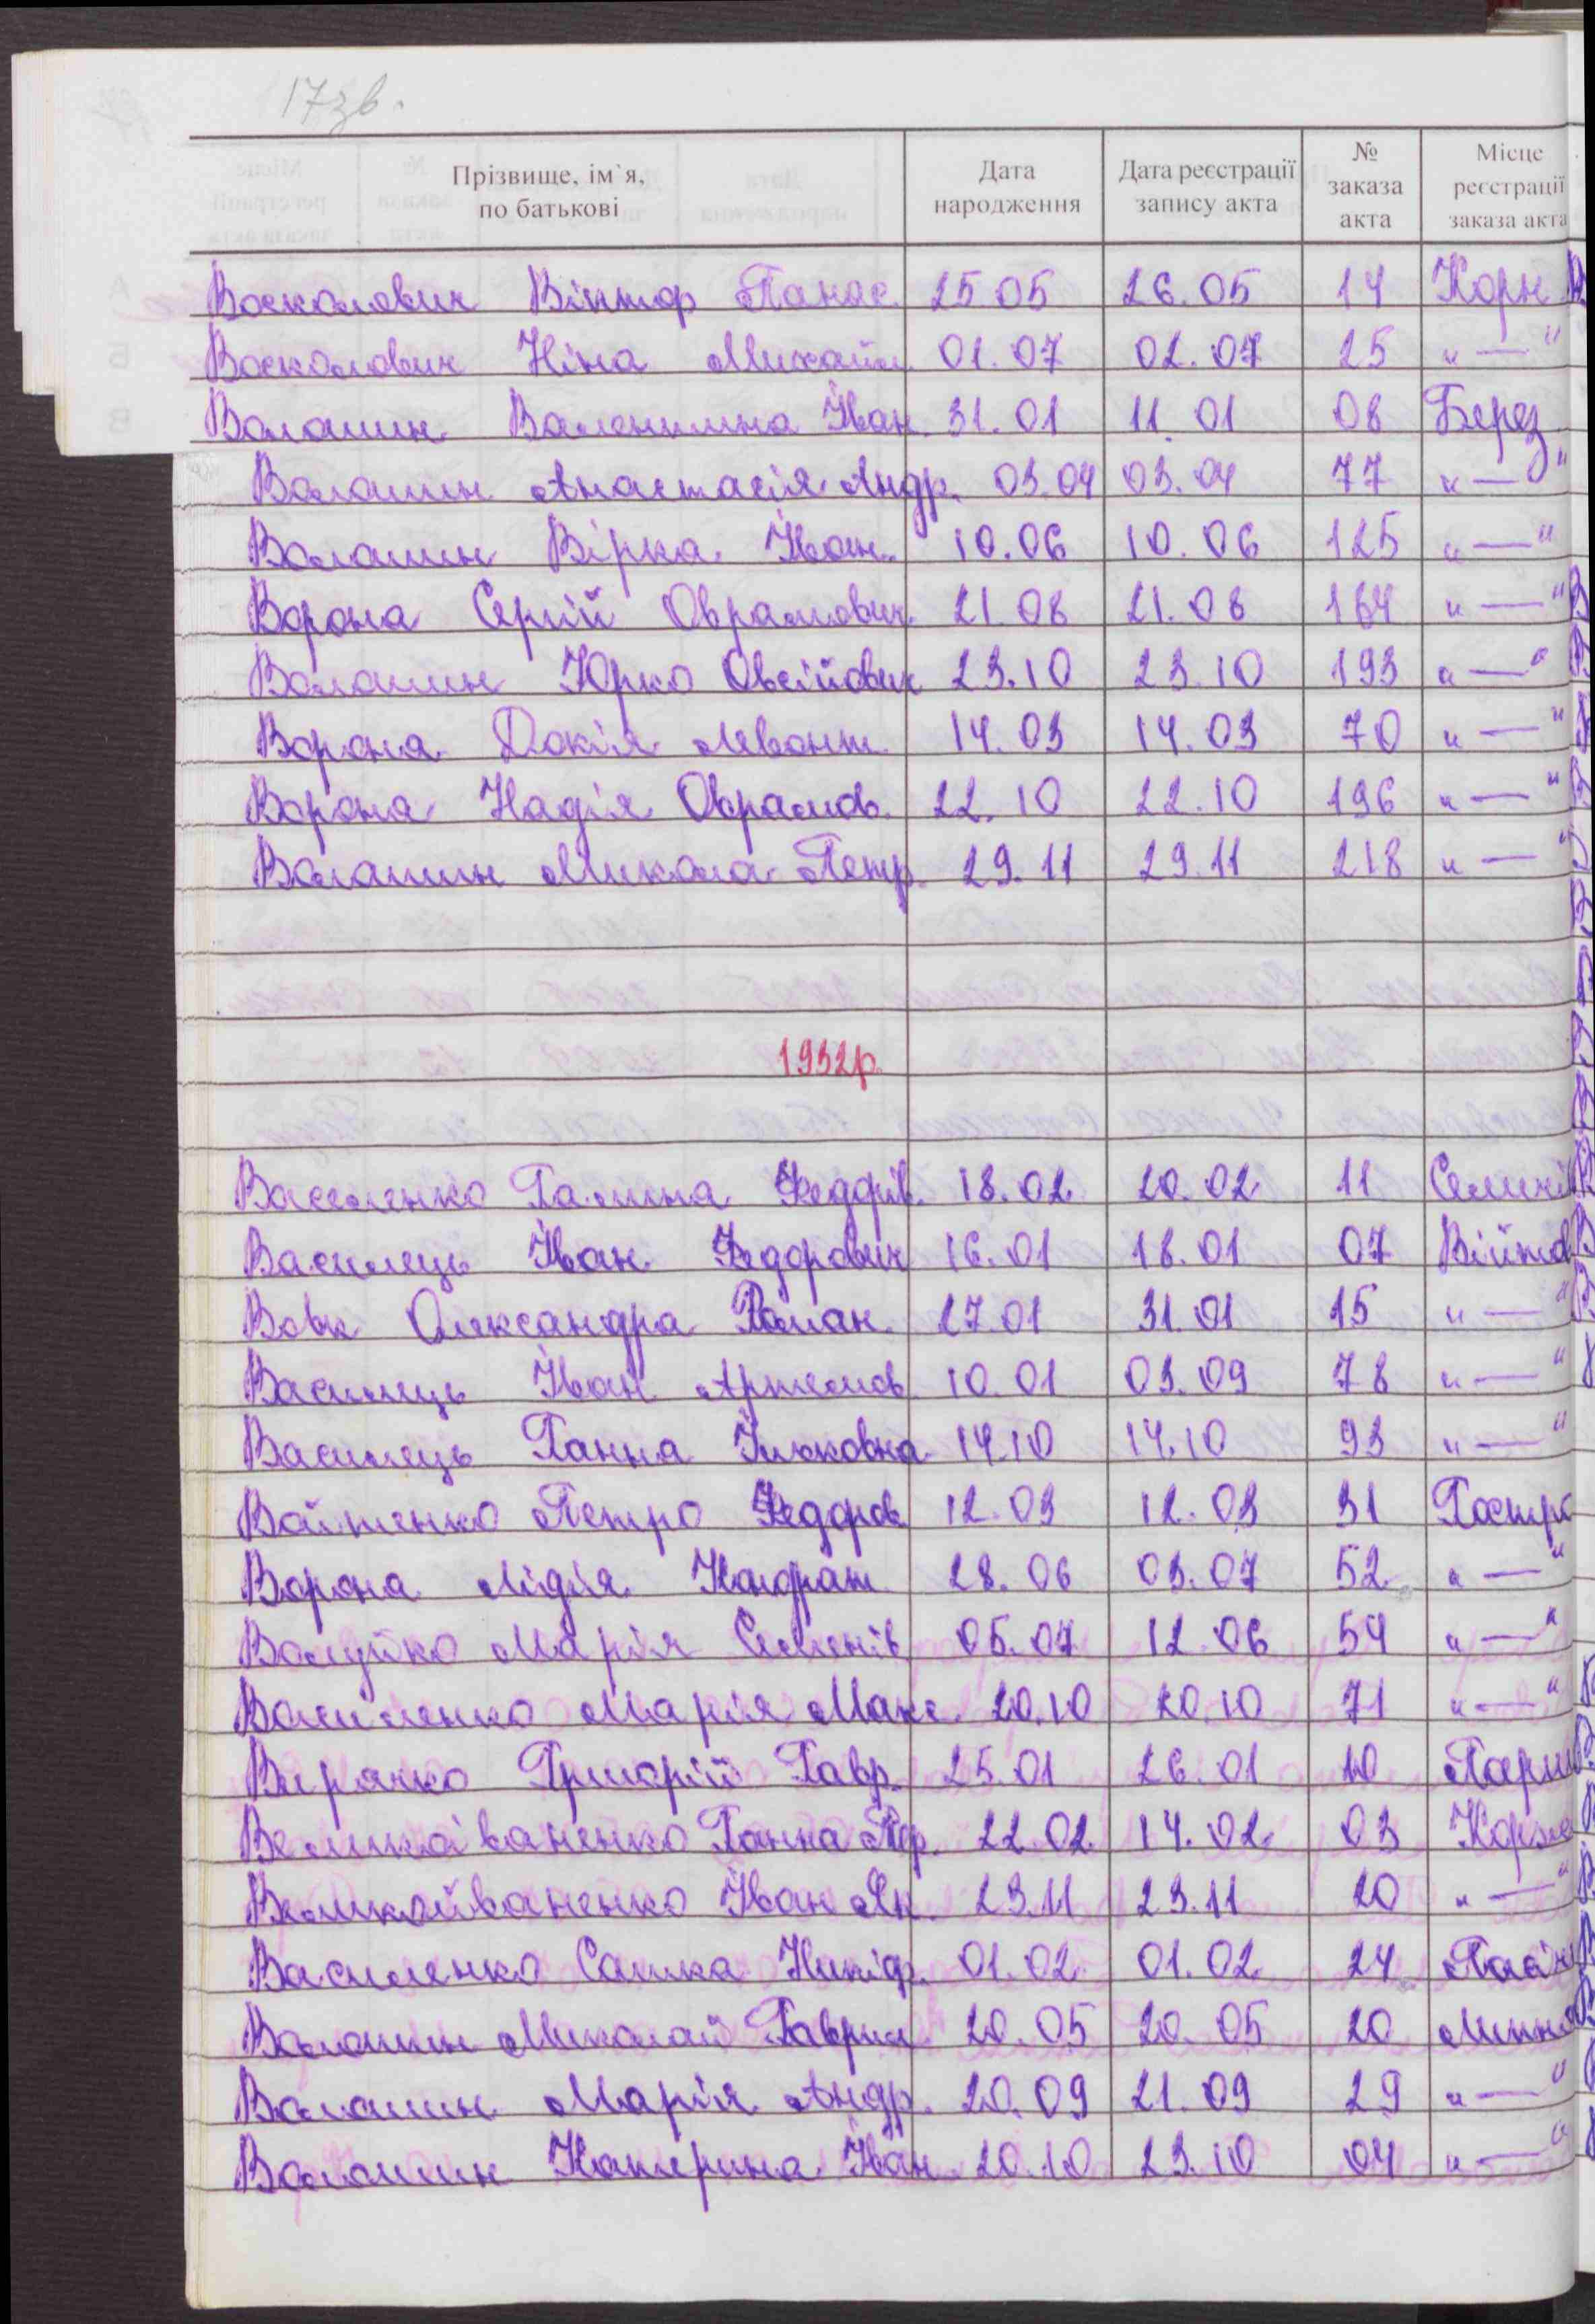 17зв.
Прізвище, ім`я, по батькові Дата народження Дата реєстрації запису акта № заказа акта Місце реєстрації заказа акта
Восколович Віктор Панас. 25 05 26.05 14 Корж
Восколович Ніна Михайл. 01.07 02.07 25 "—"
Волошин Валентина Іван. 31.01 11.01 08 Берез
Волошин Анастасія Андр. 03.04 03.04 77 "—"
Волошин Вірка Іван. 10.06 10.06 125 "—"
Ворона Сергій Оврамович 21.08 21.08 164 "—"
Волошин Юрко Овсійович 23.10 23.10 193 "—"
Ворона Докія Левонт. 14.03 14.03 70 "—"
Ворона Надія Оврамов. 22.10 22.10 196 "—"
Волошин Микола Петр. 29.11 29.11 218 "—"
1932р.
Василенко Галина Федорів. 18.02 20.02 11
Василець Іван Федорович 16.01 18.01 07 Війтов
Вовк Олександра Роман. 27.01 31.01 15 "—"
Василець Іван Артемов. 10.01 03.09 78 "—"
Василець Ганна Ільковна 14.10 14.10 93 "—"
Войтенко Петро Федоров. 12.03 12.03 31 Гостро
Ворона Лідія Кондрат 28.06 03.07 52 "—"
Марія Семенів 05.07 12.06 54 "—"
Василенко Марія Макс. 20.10 20.10 71 "—"
Григорій Гавр. 25.01 26.01 10
Великоіваненко Ганна 22.02 14.02 03 Корже
Великоіваненко Іван Як. 23.11 23.11 20 "—"
Василенко Сашка Никиф. 01.02 01.02 24
Волошин Миколай Гаврил. 20.05 20.05 20
Волошин Марія Андр. 20.09 21.09 29 "—"
Волошин Катерина Іван. 20.10 23.10 04 "—"